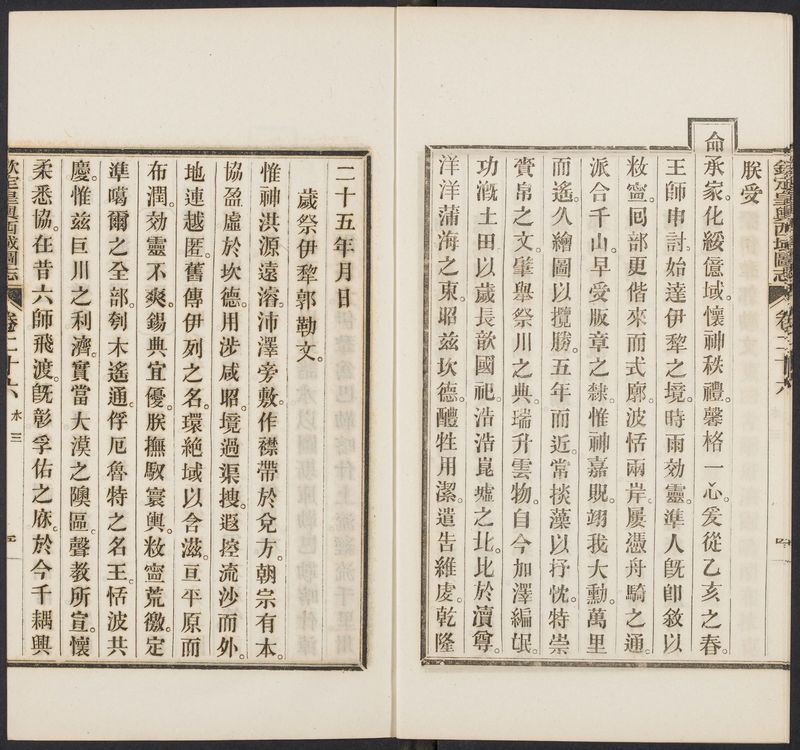 欽定皇輿西域圖志
卷二十六
朕受
命承家。化綏億域。懷神秩禮。馨格一心。爰從乙亥之春。
王師申討。始達伊犂之境。時雨効靈。準人旣卽敘以
敉寧。回部更偕來而式廓。波恬兩岸。屢憑舟騎之通。
派合千山。早受版章之隸。惟神嘉貺。翊我大勳。萬里
而遙。久繪圖以攬勝。五年而近。當掞藻以抒忱。特崇
賚帛之文。肇舉祭川之典。瑞升雲物。自今加澤編氓。
功漑土田。以歲長歆國祀。浩浩崑墟之北。比於瀆尊。
洋洋蒲海之東。昭茲坎德。醴牲用潔。遣告維虔。乾隆
二十五年月日
歲祭伊犂郭勒文。
惟神洪源遠溶。沛澤旁敷。作襟帶於兌方。朝宗有本。
協盈虛於坎德。用涉咸昭。境過渠搜。遐控流沙而外。
地連越匿。舊傳伊列之名。環絶域以含滋。亘平原而
布潤。効靈不爽。錫典宜優。朕撫馭寰輿。敉寧荒徼。定
準噶爾之全部。刳木遙通。俘厄魯特之名王。恬波共
慶。惟茲巨川之利濟。實當大漠之隩區。聲教所宣。懷
柔悉協。在昔六師飛渡。旣彰孚佑之庥。於今千耦興
欽定皇輿西域圖志
卷二十六
水三